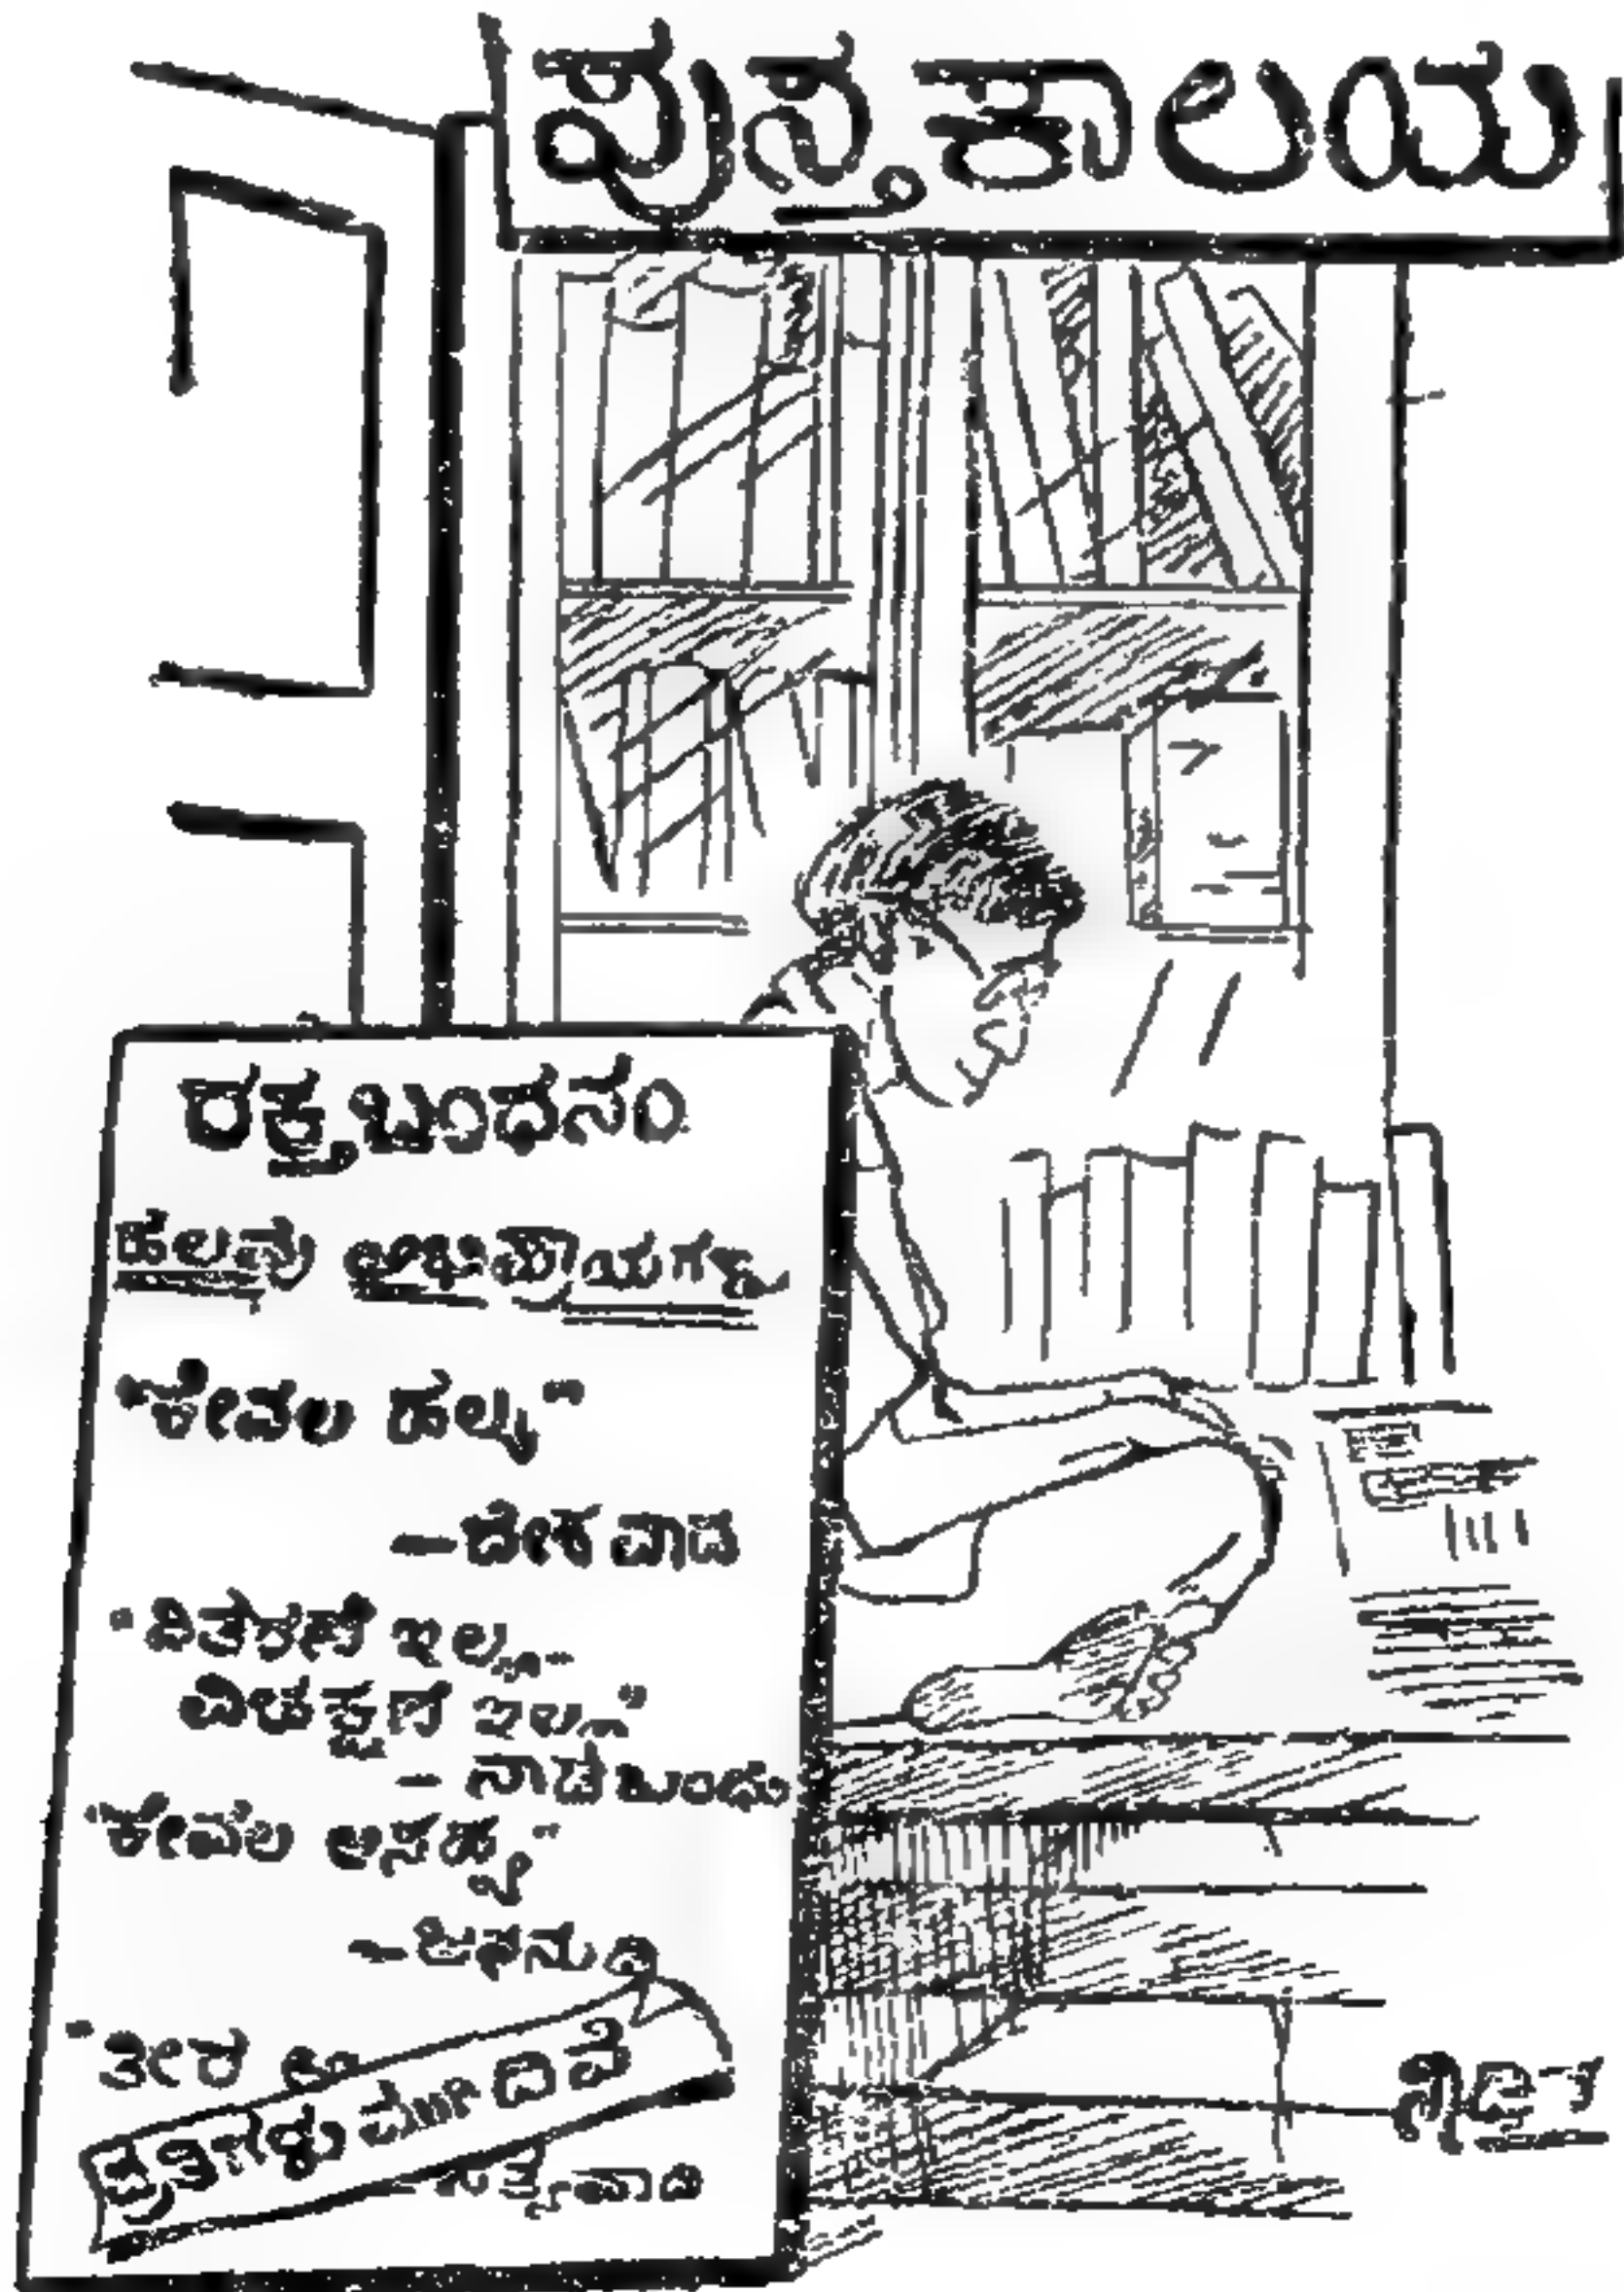 ಪುಸ್ತಕಾಲಯ
ರಕ್ತಬಂಧನಂ
ಹಲವು ಅಭಿಪ್ರಾಯಗಳು
"ಕೇವಲ ಹಲ್ಕ"
—ದೇಶವಾಡಿ
"ವಿತರಣೆ ಇಲ್ಲ-
ವಿಚಕ್ಷಣೆ ಇಲ್ಲ"
- ನಾಡಬಂಧು
"ಕೇವಲ ಅಸಹ್ಯ"
—ಜನನುಡಿ
"ತೀರ
ಪ್ರತಿಗಳು ಮುಗಿದಿವೆ
ಸತ್ಯವಾದಿ